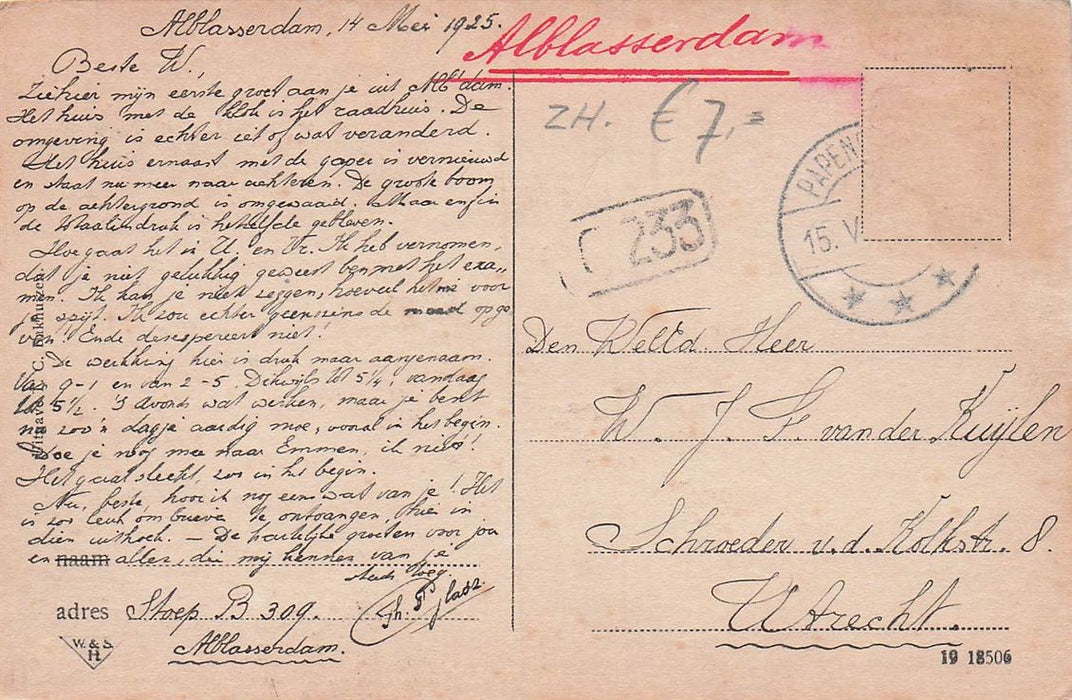 Alblasserdam, 14 Mei 1925.
Alblasserdam
Beste W,
Ziehier mijn eerste groet aan je uit Alb'dam.
Het huis met de klok is het raadhuis. De
omgeving is echter iet of wat veranderd.
Het huis ernaast met de gaper is vernieuwd
en staat nu meer naar achteren. De groote boom
op de achtergrond is omgewaaid. Maar enfin
de totaalindruk is hetzelfde gebleven.
Hoe gaat het in U. en Tr. Ik heb vernomen,
dat je niet gelukkig geweest ben met het exa„
men. Ik kan je niet zeggen, hoeveel het me voor
je spijt. Ik zou echter geenszins de moed opge
ven! Ende desespereert niet!
De werkkring hier is druk maar aangenaam.
Van 9-1 en van 2-5. Dikwijls tot 5 1/4, vandaag
tot 5 1/2. 's Avonds wat werken, maar je bent
na zoo'n dagje aardig moe, vooral in het begin.
Doe je nog mee naar Emmen, ik niet!
Het gaat slecht, zoo in het begin.
Nu, beste, hoor ik nog eens wat van je! Het
is zoo leuk om brieven te ontvangen, hier in
dien uithoek. — De hartelijke groeten voor jou
en naam allen, die mij kennen van je
adres Stoep B 309.
Alblasserdam.
W. & S.
H.
ZH. € 7,=
233
PAPEN
15. V
Den WelEd. Heer
W. J. F. van der Kuijlen
Schroeder v.d. Kolkstr. 8.
Utrecht.
19 18506